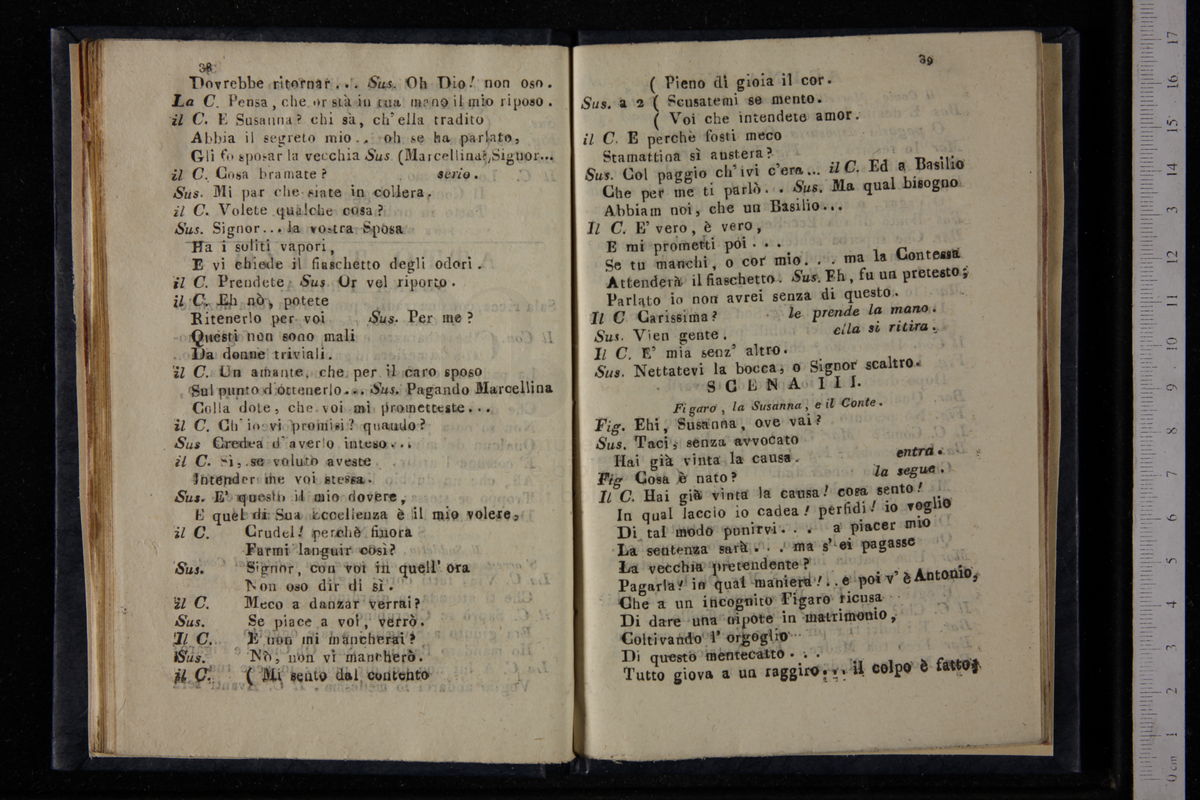 38
Dovrebbe ritornar... Sus. Oh Dio! non oso.
La C. Pensa, che or stà in tua mano il mio riposo.
il C. E Susanna? chi sà, ch'ella tradito
Abbia il segreto mio.. oh se ha parlato,
Gli fo sposar la vecchia Sus (Marcellina!)Signor...
il C. Cosa bramate? serio.
Sus. Mi par che siate in collera.
il C. Volete qualche cosa?
Sus. Signor... la vostra Sposa
Ha i soliti vapori,
E vi chiede il fiaschetto degli odori.
il C. Prendete Sus Or vel riporto.
il C. Eh nò, potete
Ritenerlo per voi Sus. Per me?
Questi non sono mali
Da donne triviali.
il C. Un amante, che per il caro sposo
Sul punto d'ottenerlo... Sus. Pagando Marcellina
Colla dote, che voi mi prometteste...
il C. Ch'io vi promisi? quando?
Sus Credea d'averlo inteso...
il C. Sì, se voluto aveste
Intender me voi stessa.
Sus. E' questo il mio dovere,
E quel di Sua Eccellenza è il mio volere,
il C. Crudel! perchè finora
Farmi languir così?
Sus. Signor, con voi in quell' ora
Non oso dir di sì.
il C. Meco a danzar verrai?
Sus. Se piace a voi, verrò.
Il C. E non mi mancherai?
Sus. Nò, non vi mancherò.
il C. ( Mi sento dal contento
39
( Pieno di gioia il cor.
Sus. a 2 ( Scusatemi se mento.
( Voi che intendete amor.
il C. E perchè fosti meco
Stamattina sì austera?
Sus. Col paggio ch'ivi c'era... il C. Ed a Basilio
Che per me ti parlò.. Sus. Ma qual bisogno
Abbiam noi, che un Basilio...
Il C. E' vero, è vero,
E mi prometti poi...
Se tu manchi, o cor mio... ma la Contessa
Attenderà il fiaschetto. Sus. Eh, fu un pretesto;
Parlato io non avrei senza di questo.
Il C Carissima? le prende la mano.
Sus. Vien gente. ella si ritira.
Il C. E' mia senz' altro.
Sus. Nettatevi la bocca, o Signor scaltro.
SCENA III.
Figaro, la Susanna, e il Conte.
Fig. Ehi, Susanna, ove vai?
Sus. Taci, senza avvocato
Hai già vinta la causa. entra.
Fig Cosa è nato? la segue.
Il C. Hai già vinta la causa! cosa sento!
In qual laccio io cadea! perfidi! io voglio
Di tal modo punirvi... a piacer mio
La sentenza sarà... ma s' ei pagasse
La vecchia pretendente?
Pagarla! in qual maniera!.. e poi v' è Antonio,
Che a un incognito Figaro ricusa
Di dare una nipote in matrimonio,
Coltivando l' orgoglio
Di questo mentecatto...
Tutto giova a un raggiro... il colpo è fatto;